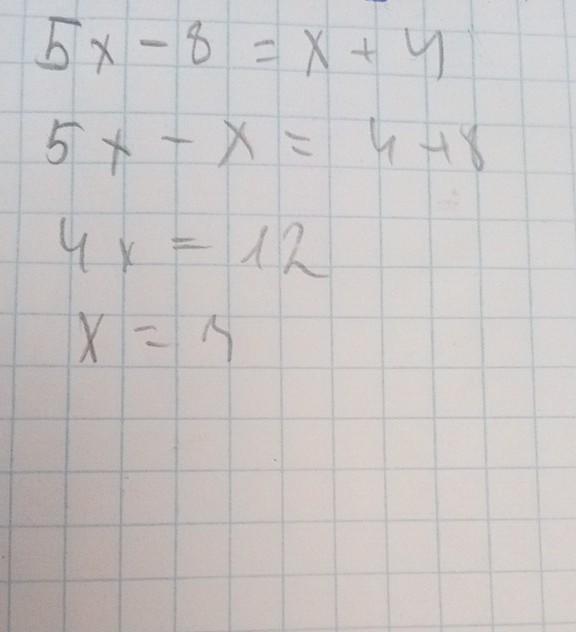 5x - 8 = x + 4
5x - x = 4 + 8
4x = 12
x =